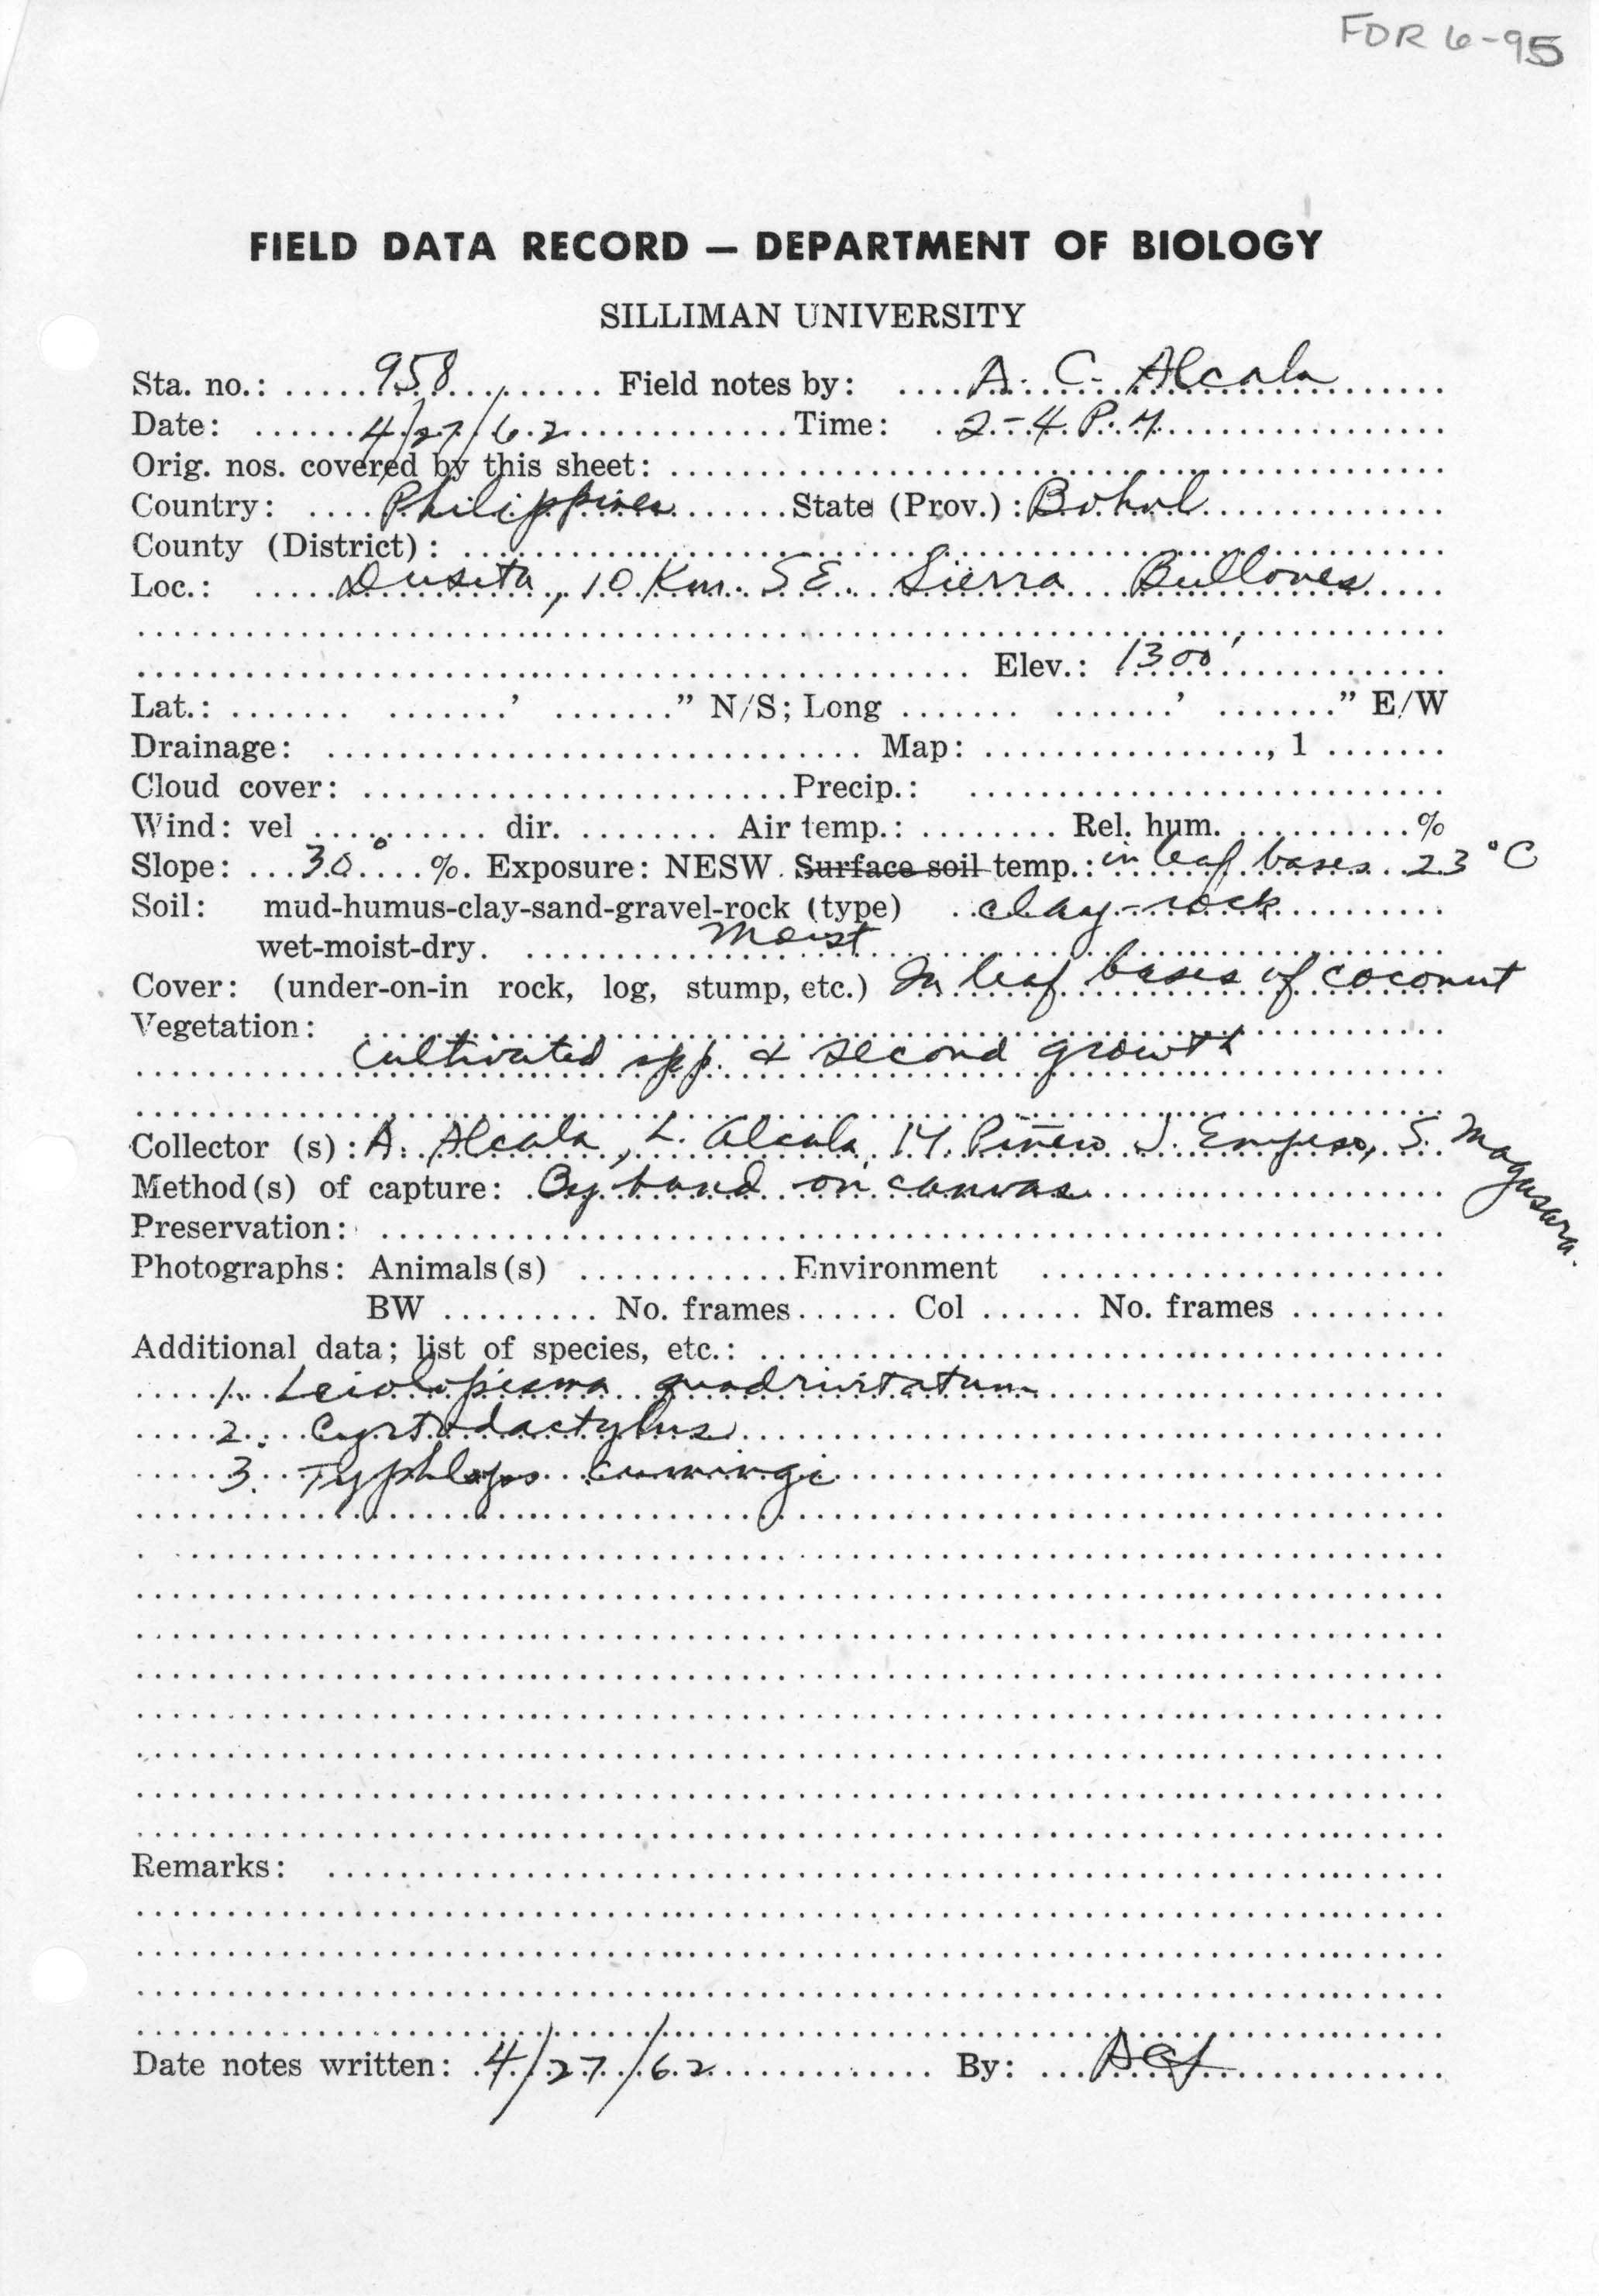 FDR 6-95
FIELD DATA RECORD — DEPARTMENT OF BIOLOGY
SILLIMAN UNIVERSITY
Sta. no.: 958 Field notes by: A. C. Alcala
Date: 4/27/62 Time: 2-4 P.M.
Orig. nos. covered by this sheet:
Country: Philippines State (Prov.): Bohol
County (District):
Loc.: Dusita, 10 Km. S E. Sierra Bullones
Elev.: 1300'
Lat.: ' " N/S; Long ' " E/W
Drainage: Map: , 1
Cloud cover: Precip.:
Wind: vel dir. Air temp.: Rel. hum. %
Slope: 30° %. Exposure: NESW. Surface soil temp.: in leaf bases 23 °C
Soil: mud-humus-clay-sand-gravel-rock (type) clay-rock
wet-moist-dry. Moist
Cover: (under-on-in rock, log, stump, etc.) In leaf bases of coconut
Vegetation:
cultivated spp. & second growth
Collector (s): A. Alcala, L. Alcala, M. Piñero J. Empeso, S. Magusara.
Method(s) of capture: By hand on canvas
Preservation:
Photographs: Animals(s) Environment
BW No. frames Col No. frames
Additional data; list of species, etc.:
1. Leiolopisma quadrivittatum
2. Cyrtodactylus
3. Typhlops cumingi
Remarks:
Date notes written: 4/27/62 By: